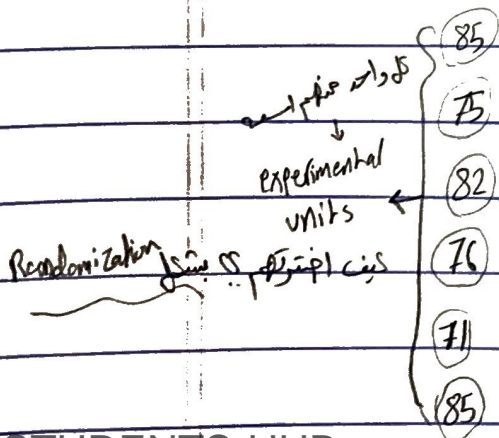 85
75
82
76
71
85
كل واحد منهم اسمه
experimental
units
كيف اخترتهم ؟؟ بشكل Randomization
STUDENTS-HUB